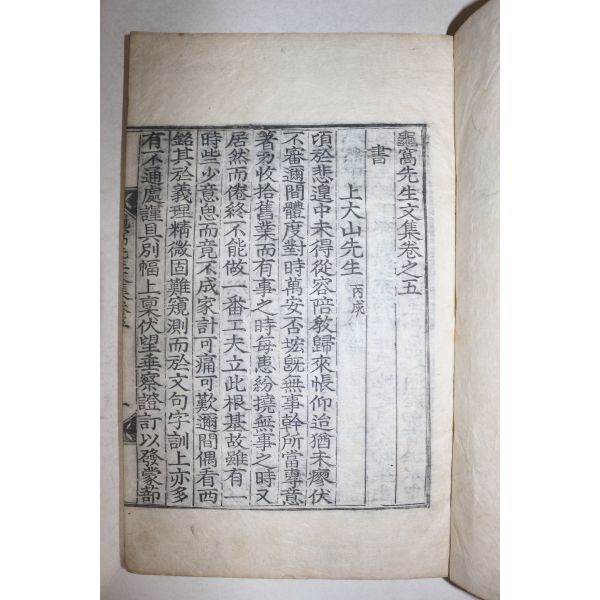 龜窩先生文集卷之五
書
上大山先生 丙戌
頃於悲遑中未得從容陪敎歸來悵仰迨猶未廖伏
不審邇間體度對時萬安否㙆旣無事幹所當專意
著力收拾舊業而有事之時每患紛撓無事之時又
居然而倦終不能做一番工夫立此根基故雖有一
時些少意思而竟不成家計可痛可歎邇間偶看西
銘其於義理精微固難窺測而於文句字訓上亦多
有不通處謹具別幅上稟伏望垂察證訂以發蒙蔀